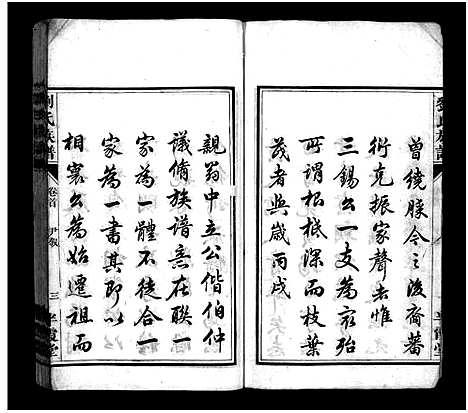 曾繞膝今之後裔蕃
衍克振家聲者惟
三錫公一支為最殆
所謂根柢深而枝葉
茂者與歲丙戌
劉氏族譜
卷首
尹叙
三
親翁中立公偕伯仲
議脩族譜意在聯一
家為一體不徒合一
家為一書其即以
相襄公為始遷祖而